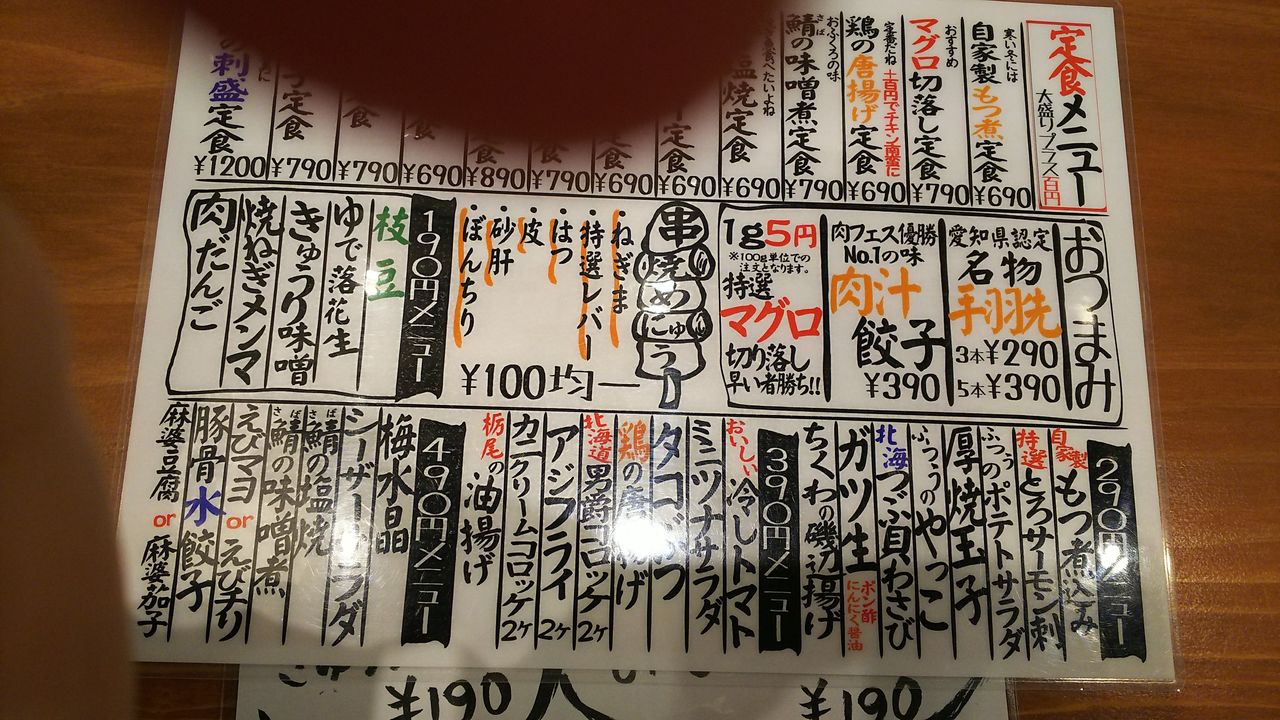 定食メニュー
大盛りプラス百円
寒い冬には
自家製もつ煮定食
¥690
おすすめ
マグロ切落し定食
¥790
定番だね
鶏の唐揚げ定食
¥690
おふくろの味
鯖の味噌煮定食
さば
¥790
食べたいよね
塩焼定食
¥690
定食
¥690
¥690
定食
¥790
定食
¥890
定食
¥690
定食
¥790
定食
¥790
の刺盛定食
¥1200
おつまみ
愛知県認定
名物
手羽先
3本¥290
5本¥390
肉フェス優勝
No.1の味
肉汁
餃子
¥390
1g5円
※100g単位での
注文となります。
特選
マグロ
切り落し
早い者勝ち!!
串焼めにゅう
・ねぎま
・特選レバー
・はつ
・皮
・砂肝
・ぼんちり
¥100均一
190円メニュー
枝豆
ゆで落花生
きゅうり味噌
焼ねぎメンマ
肉だんご
290円メニュー
自家製もつ煮込み
特選とろサーモン刺
ふつぅのポテトサラダ
厚焼玉子
ふつぅのやっこ
北海つぶ貝わさび
ガツ生
ポン酢
にんにく醤油
ちくわの磯辺揚げ
390円メニュー
おいしい冷しトマト
ミニツナサラダ
タコぶつ
鶏の唐揚げ
北海道男爵コロッケ2ヶ
アジフライ2ヶ
カニクリームコロッケ2ヶ
栃尾の油揚げ
490円メニュー
梅水晶
シーザーサラダ
鯖の塩焼
さば
鯖の味噌煮
さば
えびマヨorえびチリ
豚骨水餃子
麻婆豆腐or麻婆茄子
¥190
¥190